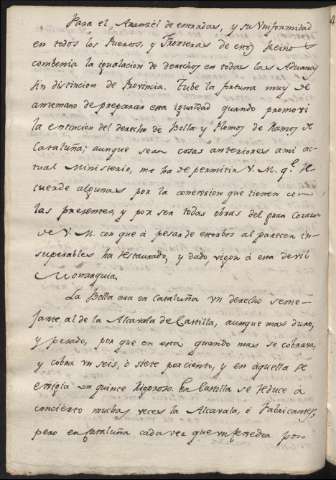 Para el Aranzel de entradas, y su Uniformidad
en todos los Puertos, y Fronteras de estos Reinos
combenia la igualacion de derechos en todas las Aduanas
sin distincion de Provincia. Tube la fortuna muy de
antemano de preparar esta igualdad quando promovi
la extincion del derecho de Bolla y Plomos de Ramos de
Cataluña; aunque sean cosas anteriores a mi ac-
tual Ministerio, me ha de permitir V. M. qe. re-
cuerde algunas por la conexion que tienen con
las presentes, y por ser todas obras del gran Corazon
de V. M. con que à pesar de estorbos al parecer in-
superables ha restaurado, y dado vigor à esta devil
Monarquia.
La Bolla era en Cataluña un derecho seme-
jante al de la Alcavala de Castilla, aunque mas duro,
y pesado, por que en esta quando mas se cobrava,
y cobra un seis, ò siete por ciento, y en aquella se
exigia un quince rigoroso. En Castilla se reduce à
concierto muchas veces la Alcavala, ò Fabricantes,
pero en Cataluña cada vez que un texedor